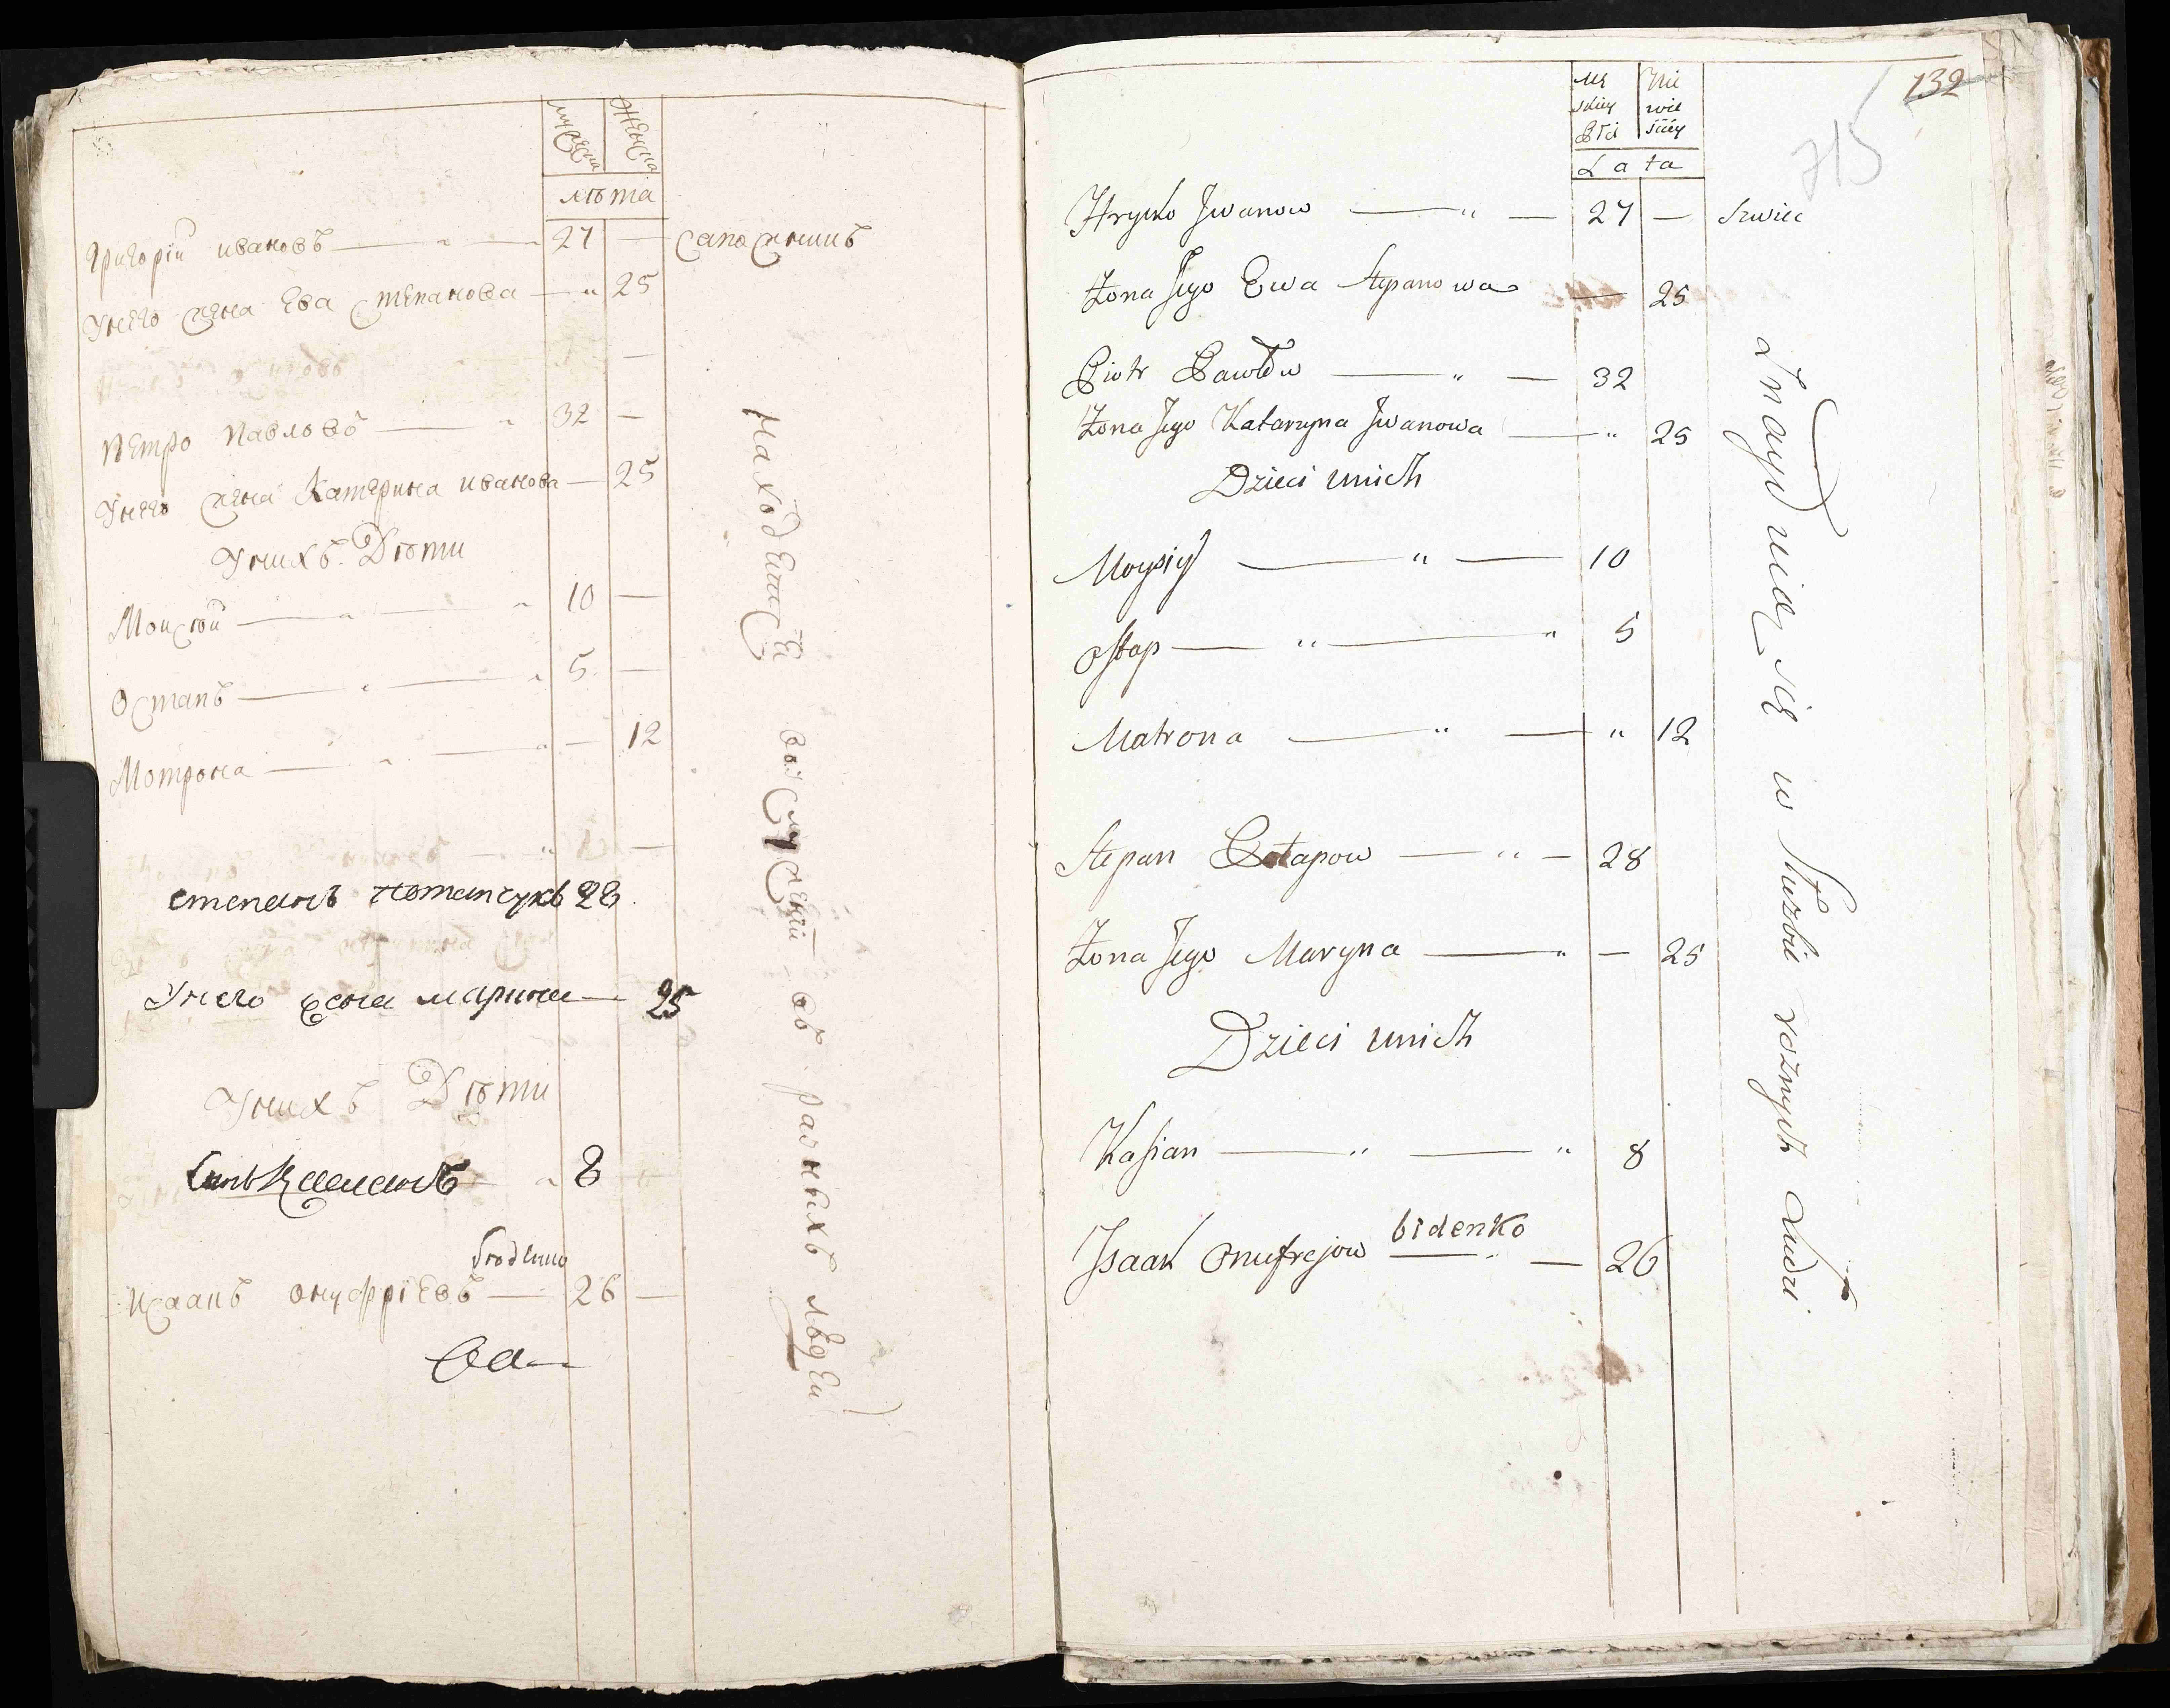 мужеска
женска
лѣта
Григорій ивановъ — „ — 27 — Сапожникъ
Унего жена Ева Степанова — „ 25
Петро Павловъ — „ 32 —
Унего жена Катерина иванова — 25
Унихъ Дѣти
Моисѣй — „ — „ 10 —
Остапъ — „ — „ 5 —
Мотрона — „ — „ — 12
степанъ потапчукъ 28
Унего жона марина — 25
Унихъ Дѣти
Синъ „ 8
Исаакъ ануфрїевъ — 26 —
находятся въ услуженїи въ разныхъ людей
132
715
Mę
skiey
Płci
Nie
wie
sciey
Lata
Hryćko Jwanow — „ — 27 — Szwiec
Żona Jego Ewa Stepanowa — 25
Piotr Pawłow — „ — 32
Żona Jego Katarzyna Jwanowa — „ 25
Dzieci unich
Moysiy — „ — 10
Ostap — „ — „ 5
Matrona — „ — „ 12
Stepan Potapow — „ — 28
Żona Jego Maryna — „ — 25
Dzieci unich
Kasian — „ — „ 8
bidenko
Jsaak Onufrejow — „ — 26
Znayduią się w Służbie rożnych Ludzi